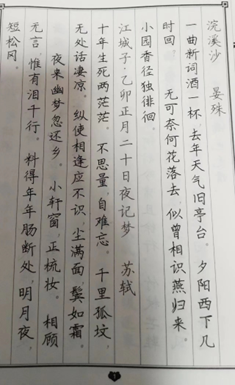 浣溪沙 晏殊
一曲新词酒一杯 去年天气旧亭台。 夕阳西下几
时回。 无可奈何花落去 似曾相识燕归来。
小园香径独徘徊
江城子·乙卯正月二十日夜记梦 苏轼
十年生死两茫茫。 不思量,自难忘。 千里孤坟,
无处话凄凉。 纵使相逢应不识,尘满面 鬓如霜。
夜来幽梦忽还乡。 小轩窗 正梳妆。 相顾
无言 惟有泪千行。 料得年年肠断处,明月夜,
短松冈。